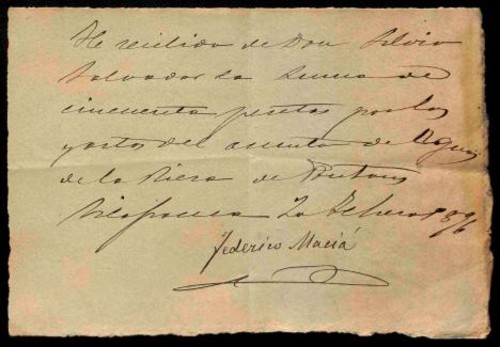 He recibido de Don Silvio
Salvador la suma de
cincuenta pesetas por los
gastos del asunto de Aguas
de la Riera de Pontons
Vilafranca 20 Febrero 1896
Federico Maciá